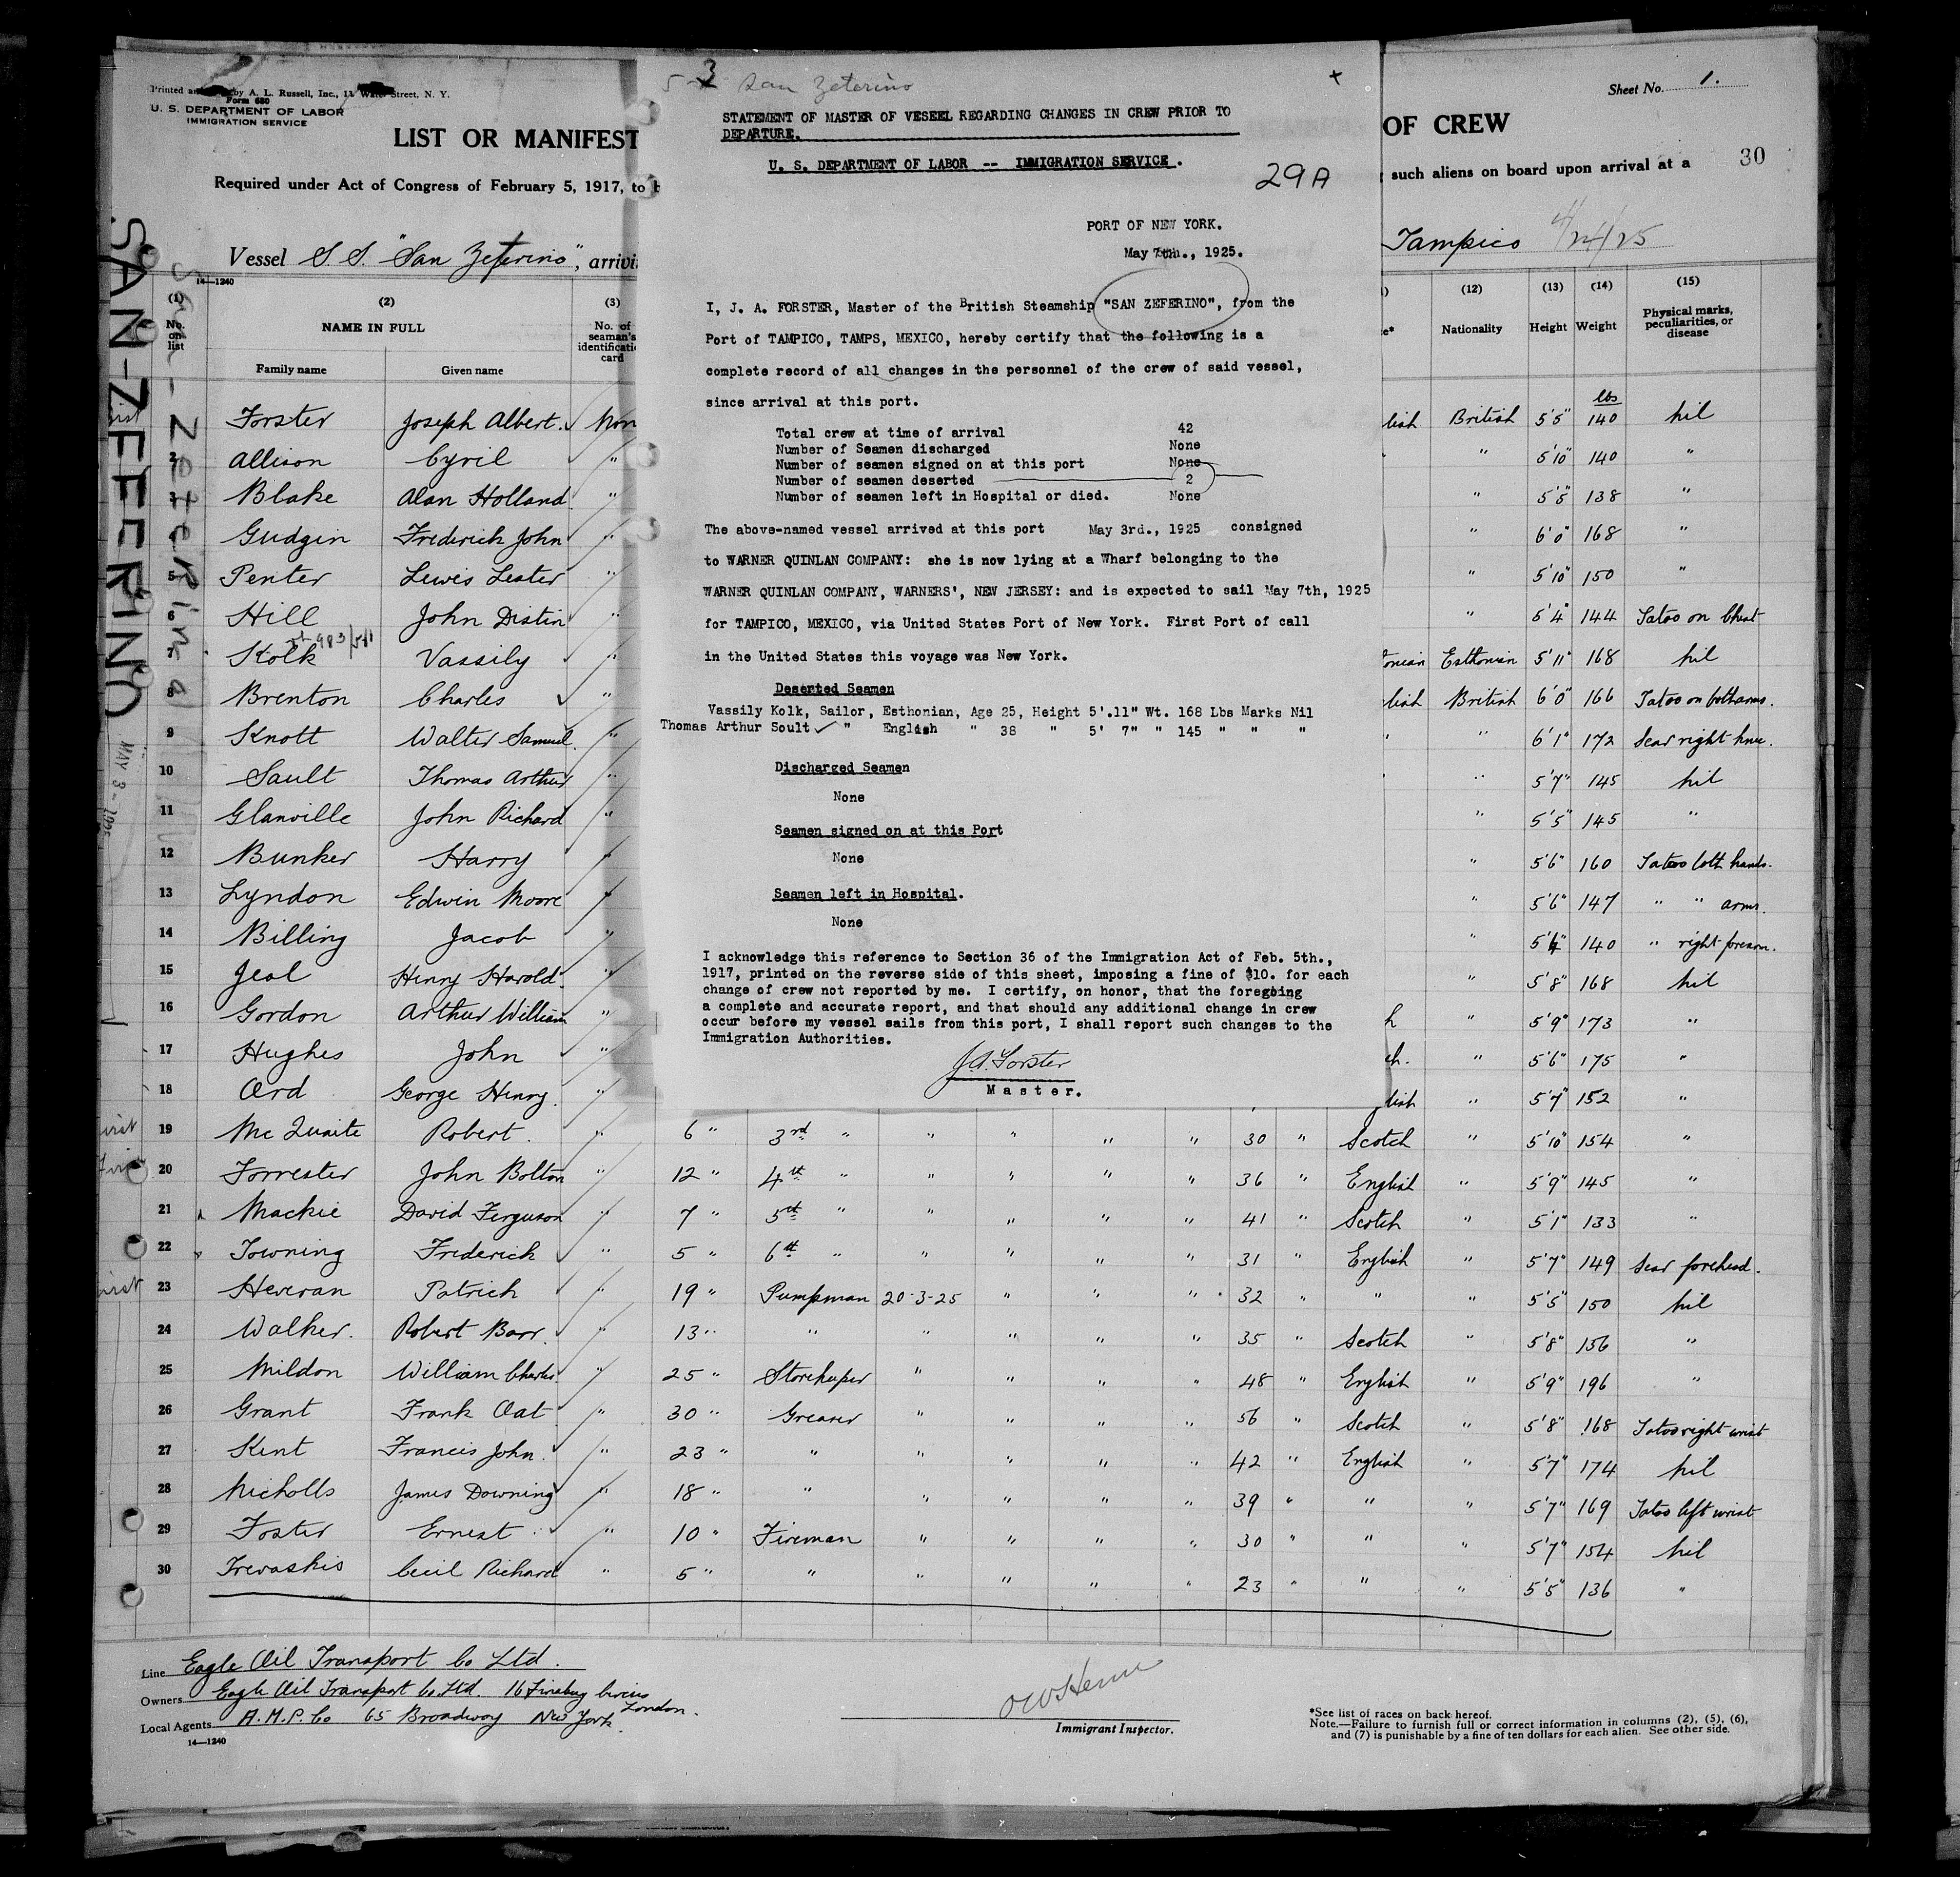 Printed and by A. L. Russell, Inc., 11 Water Street, N. Y.
Form 680
U. S. DEPARTMENT OF LABOR
IMMIGRATION SERVICE
LIST OR MANIFEST
OF CREW
Sheet No. 1.
Required under Act of Congress of February 5, 1917, to
such aliens on board upon arrival at a
30
Vessel S.S. "San Zeferino", arrivi
Tampico 4/24/25
14—1240
SAN-ZEFFERINO
MAY 3-1925
(1) No. on list
(2) NAME IN FULL
Family name Given name
(3) No. of seaman's identificati card
(12) Nationality
(13) Height
(14) Weight
(15) Physical marks, peculiarities, or disease
lbs
Forster Joseph Albert. Non lish British 5'5" 140 nil
2 Allison Cyril " " 5'10" 140 "
3 Blake Alan Holland " " 5'5" 138 "
4 Gudgin Frederick John " " 6'0" 168 "
5 Penter Lewis Lester " " 5'10" 150 "
6 Hill John Distin " " 5'4" 144 Tatoo on Chest
7 Kolk Vassily " onian Esthonian 5'11" 168 nil
8 Brenton Charles " lish British 6'0" 166 Tatoo on both arms.
9 Knott Walter Samuel " " 6'1" 172 Scar right knee.
10 Sault Thomas Arthur " " 5'7" 145 nil
11 Glanville John Richard " " 5'5" 145 "
12 Bunker Harry " " 5'6" 160 Tatoo both hands.
13 Lyndon Edwin Moore " " 5'6" 147 " " arms.
14 Billing Jacob " " 5'4" 140 " right forearm.
15 Jeal Henry Harold. " " 5'8" 168 nil
16 Gordon Arthur William " h " 5'9" 173 "
17 Hughes John " ch. " 5'6" 175 "
18 Ord George Henry. " lish " 5'7" 152 "
19 Mc Quaite Robert. " 6 " 3rd " " " " " 30 " Scotch " 5'10" 154 "
20 Forrester John Bolton " 12 " 4th " " " " " 36 " English " 5'9" 145 "
21 Mackie David Ferguson " 7 " 5th " " " " " 41 " Scotch " 5'1" 133 "
22 Towning Frederick " 5 " 6th " " " " " 31 " English " 5'7" 149 Scar forehead.
23 Heveran Patrick " 19 " Pumpman 20-3-25 " " " 32 " " " 5'5" 150 nil
24 Walker. Robert Barr. " 13 " " " " " " 35 " Scotch " 5'8" 156 "
25 Mildon William Charles " 25 " Storekeeper " " " " 48 " English " 5'9" 196 "
26 Grant Frank Oat " 30 " Greaser " " " " 56 " Scotch " 5'8" 168 Tatoo right wrist
27 Kent Francis John. " 23 " " " " " " 42 " English " 5'7" 174 nil
28 Nicholls James Downing " 18 " " " " " " 39 " " " 5'7" 169 Tatoo left wrist
29 Foster Ernest " 10 " Fireman " " " " 30 " " " 5'7" 154 nil
30 Trevaskis Cecil Richard " 5 " " " " " " 23 " " " 5'5" 136 "
San Zeferino
STATEMENT OF MASTER OF VESEEL REGARDING CHANGES IN CREW PRIOR TO
DEPARTURE.
U. S. DEPARTMENT OF LABOR -- IMMIGRATION SERVICE.
29A
PORT OF NEW YORK.
May 7th., 1925.
I, J. A. FORSTER, Master of the British Steamship "SAN ZEFERINO", from the
Port of TAMPICO, TAMPS, MEXICO, hereby certify that the following is a
complete record of all changes in the personnel of the crew of said vessel,
since arrival at this port.
Total crew at time of arrival 42
Number of Seamen discharged None
Number of seamen signed on at this port None
Number of seamen deserted 2
Number of seamen left in Hospital or died. None
The above-named vessel arrived at this port May 3rd., 1925 consigned
to WARNER QUINLAN COMPANY: she is now lying at a Wharf belonging to the
WARNER QUINLAN COMPANY, WARNERS', NEW JERSEY: and is expected to sail May 7th, 1925
for TAMPICO, MEXICO, via United States Port of New York. First Port of call
in the United States this voyage was New York.
Deserted Seamen
Vassily Kolk, Sailor, Esthonian, Age 25, Height 5'.11" Wt. 168 Lbs Marks Nil
Thomas Arthur Soult " English " 38 " 5' 7" " 145 " " "
Discharged Seamen
None
Seamen signed on at this Port
None
Seamen left in Hospital.
None
I acknowledge this reference to Section 36 of the Immigration Act of Feb. 5th.,
1917, printed on the reverse side of this sheet, imposing a fine of $10. for each
change of crew not reported by me. I certify, on honor, that the foregoing
a complete and accurate report, and that should any additional change in crew
occur before my vessel sails from this port, I shall report such changes to the
Immigration Authorities.
J.A. Forster
Master.
Line Eagle Oil Transport Co Ltd.
Owners Eagle Oil Transport Co. Ltd. 16 Finsbury Circus London.
Local Agents A.M.P. Co 65 Broadway New York.
14—1240
Immigrant Inspector.
*See list of races on back hereof.
Note.—Failure to furnish full or correct information in columns (2), (5), (6),
and (7) is punishable by a fine of ten dollars for each alien. See other side.